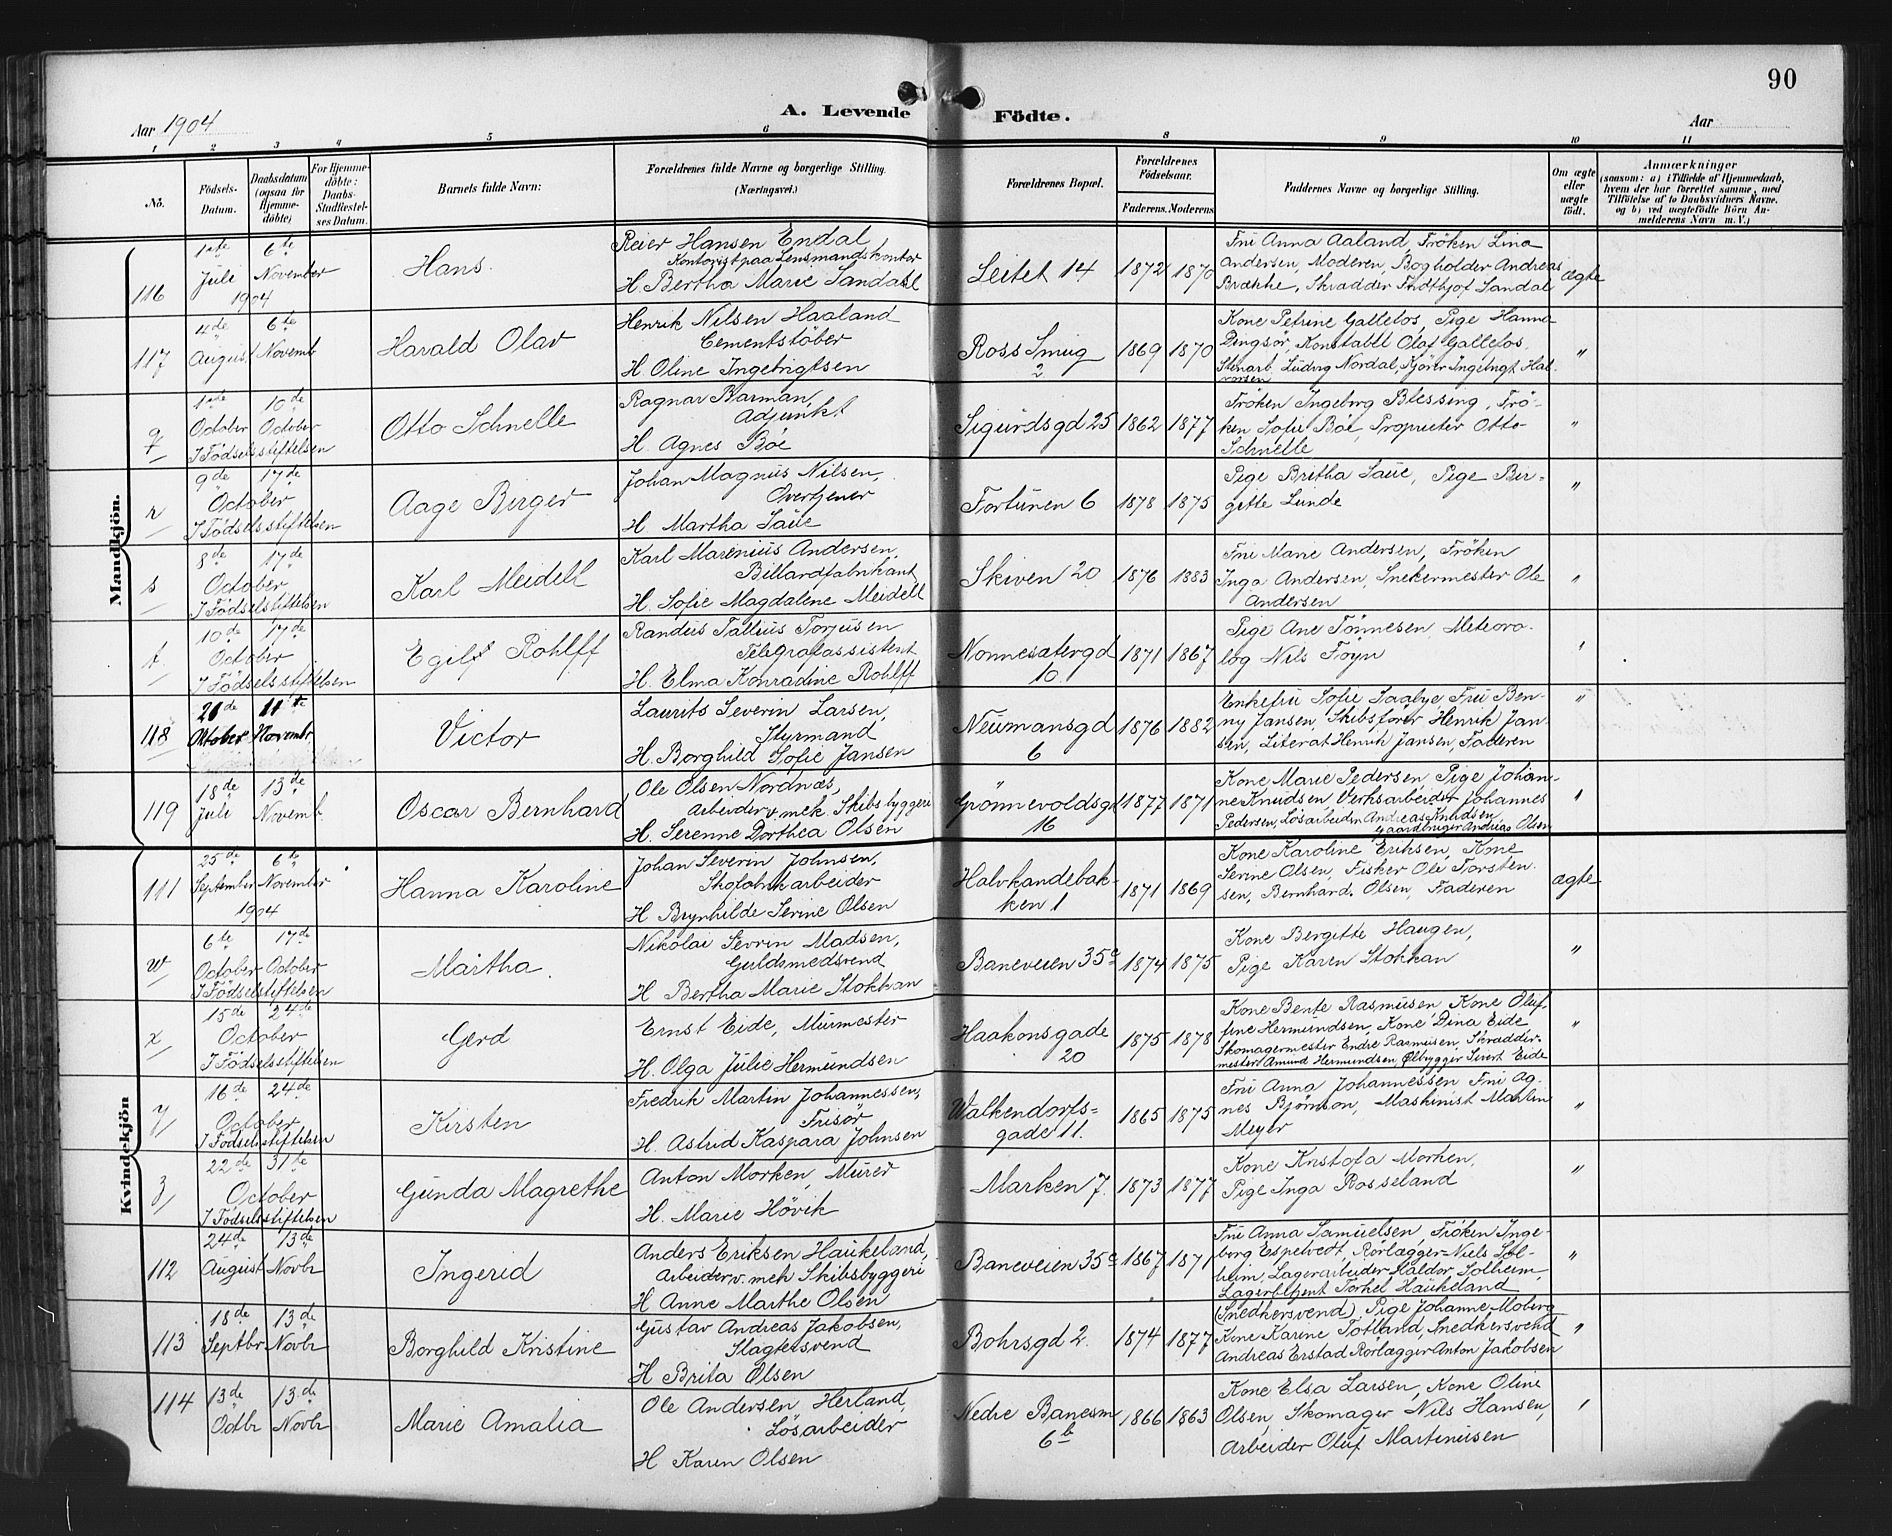 90
A. Levende Födte.
Aar 1904
Aar
1 2 3 4 5 6 8 9 10 11
No.
Födsels-Datum.
Daabsdatum (ogsaa for Hjemme-döbte)
For Hjemme-döbte: Daabs-Stadfæstel-ses Datum.
Barnets fulde Navn:
Forældrenes fulde Navne og borgerlige Stilling. (Næringsvei.)
Forældrenes Bopæl.
Forældrenes Födselsaar.
Faderens. Moderens.
Faddernes Navne og borgerlige Stilling.
Om ægte eller uægte født.
Anmærkninger
(saasom: a) i Tilfælde af Hjemmedaab, hvem der har forrettet samme, med Tilföielse af to Daabsvidners Navne. og b) ved uægtefödte Börn An-melderens Navn m. V.)
Mandkjön.
116 1ste Juli 1904 6te November Hans.
Reier Hansen Endal
Kontorist paa Lensmandskontor
H. Bertha Marie Sandahl
Leitet 14 1872 1870
Fru Anna Aaland, Fröken Lina
Andersen, Moderen, Bogholder Andreas
Brække, Skrædder Fridthjof Sandal
ægte
117 4de August 6te Novemb Harald Olav
Henrik Nilsen Haaland
Cementstöber
H. Oline Ingebrigtsen
Ross Smug 2 1869 1870
Kone Petrine Gallefos, Pige Hanna
Dingsör, Konstabel Olaf Gallefos,
Stenarb. Ludvig Nordal, Kjörer Ingebrigt Hal-
vorsen
"
q 1ste October 10de October I Födselsstiftelsen Otto Schnelle
Ragnar Barman,
Adjunkt
H. Agnes Böe
Sigurdsgd 25 1862 1877
Fröken Ingeborg Blessing, Frö-
ken Sofie Böe, Proprietær Otto
Schnelle
"
r 9de 17de October I Födselsstiftelsen Aage Birger
Johan Magnus Nilsen,
Overtjener
H. Martha Saue
Fortunen 6 1878 1875
Pige Britha Saue, Pige Bir-
gitte Lunde
"
s 8de 17de October I Födselsstiftelsen Karl Meidell
Karl Marenius Andersen,
Billardfabrikant
H. Sofie Magdalene Meidell
Skiven 20 1876 1883
Fru Marie Andersen, Fröken
Inga Andersen, Snekermester Ole
Andersen
"
t 10de 17de October I Födselsstiftelsen Egilf Rohlff
Randus Tallius Torjusen
Telegrafassistent
H. Elma Konradine Rohlff
Nonnesætergd 10 1871 1867
Pige Ane Tönnesen, Meteoro-
log Nils Föyn
"
118 21de Oktober 11te Novembr. Victor
Laurits Severin Larsen,
Styrmand
H. Borghild Sofie Jansen
Neumansgd 6 1876 1882
Enkefru Sofie Saabye Fru Ben-
ny Jansen, Skibsförer Henrik Jan-
sen, Literat Henrik Jansen, Faderen
"
119 18de Juli 13de Novemb. Oscar Bernhard
Ole Olsen Nordnæs,
Arbeider v. mek. Skibsbyggeri
H. Serenne Dorthea Olsen
Grönnevoldsgd 16 1877 1871
Kone Marie Pedersen, Pige Johan-
ne Knudsen, Verksarbeider Johannes
Pedersen, Lösarbeider Andreas Knudsen,
Gaardbruger Andreas Olsen
"
Kvindekjön
111 25de September 1904 6te November Hanna Karoline
Johan Severin Johnsen,
Skofabrikarbeider
H. Brynhilde Serine Olsen
Halvkandebak-
ken 1 1871 1869
Kone Karoline Eriksen, Kone
Serine Olsen, Fisker Ole Torsten-
sen, Bernhard Olsen, Faderen
ægte
w 6te October 17de October I Födselsstiftelsen Martha.
Nikolai Sevrin Madsen,
Guldsmedsvend
H Bertha Marie Stokkan
Baneveien 35c 1874 1875
Kone Bergitte Haugen,
Pige Karen Stokkan
"
x 15de 24de October I Födselsstiftelsen Gerd
Ernst Eide, Murmester
H. Olga Julie Hermundsen
Haakonsgade 20 1875 1878
Kone Bente Rasmusen, Kone Oluf-
fine Hermundsen, Kone Dina Eide
Skomagermester Endre Rasmusen, Skrædder-
mester Amund Hermundsen, Ølbrygger Sivert Eide
"
y 16de 24de October I Födselsstiftelsen Kirsten
Fredrik Martin Johannessen,
Frisör
H. Astrid Kaspara Johnsen
Walkendorfs-
gade 11. 1865 1875
Fru Anna Johannessen Fru Ag-
nes Björnson, Maskinist Martin
Meyer
"
z 22de 31te October I Födselsstiftelsen Gunda Magrethe
Anton Morken, Murer
H. Marie Hövik
Marken 7. 1873 1877
Kone Kristofa Morken,
Pige Inga Rosseland
"
112 24de August 13de Novbr Ingerid
Anders Eriksen Haukeland,
Arbeider v. mek Skibsbyggeri
H Anne Marthe Olsen
Baneveien 35c 1867 1871
Fru Anna Samuelsen, Fröken Inge-
borg Espelvedt, Rörlægger Niels Sol-
heim, Lagerarbeider Haldor Solheim,
Lagerbetjent Torkel Haukeland
"
113 18de Septbr 13de Novbr Borghild Kristine
Gustav Andreas Jakobsen,
Slagtersvend
H Brita Olsen
Bohrsgd 2. 1874 1877
(Snedkersvend) Pige Johanne Moberg
Kone Karine Totland, Snedkersvend
Andreas Erstad Rörlægger Anton Jakobsen
"
114 13de Octbr 13de Novbr Marie Amalia
Ole Andersen Herland,
Lösarbeider
H Karen Olsen
Nedre Banesm 6b 1866 1863
Kone Elsa Larsen, Kone Oline
Olsen, Skomager Nils Hansen,
Arbeider Oluf Martinusen
"